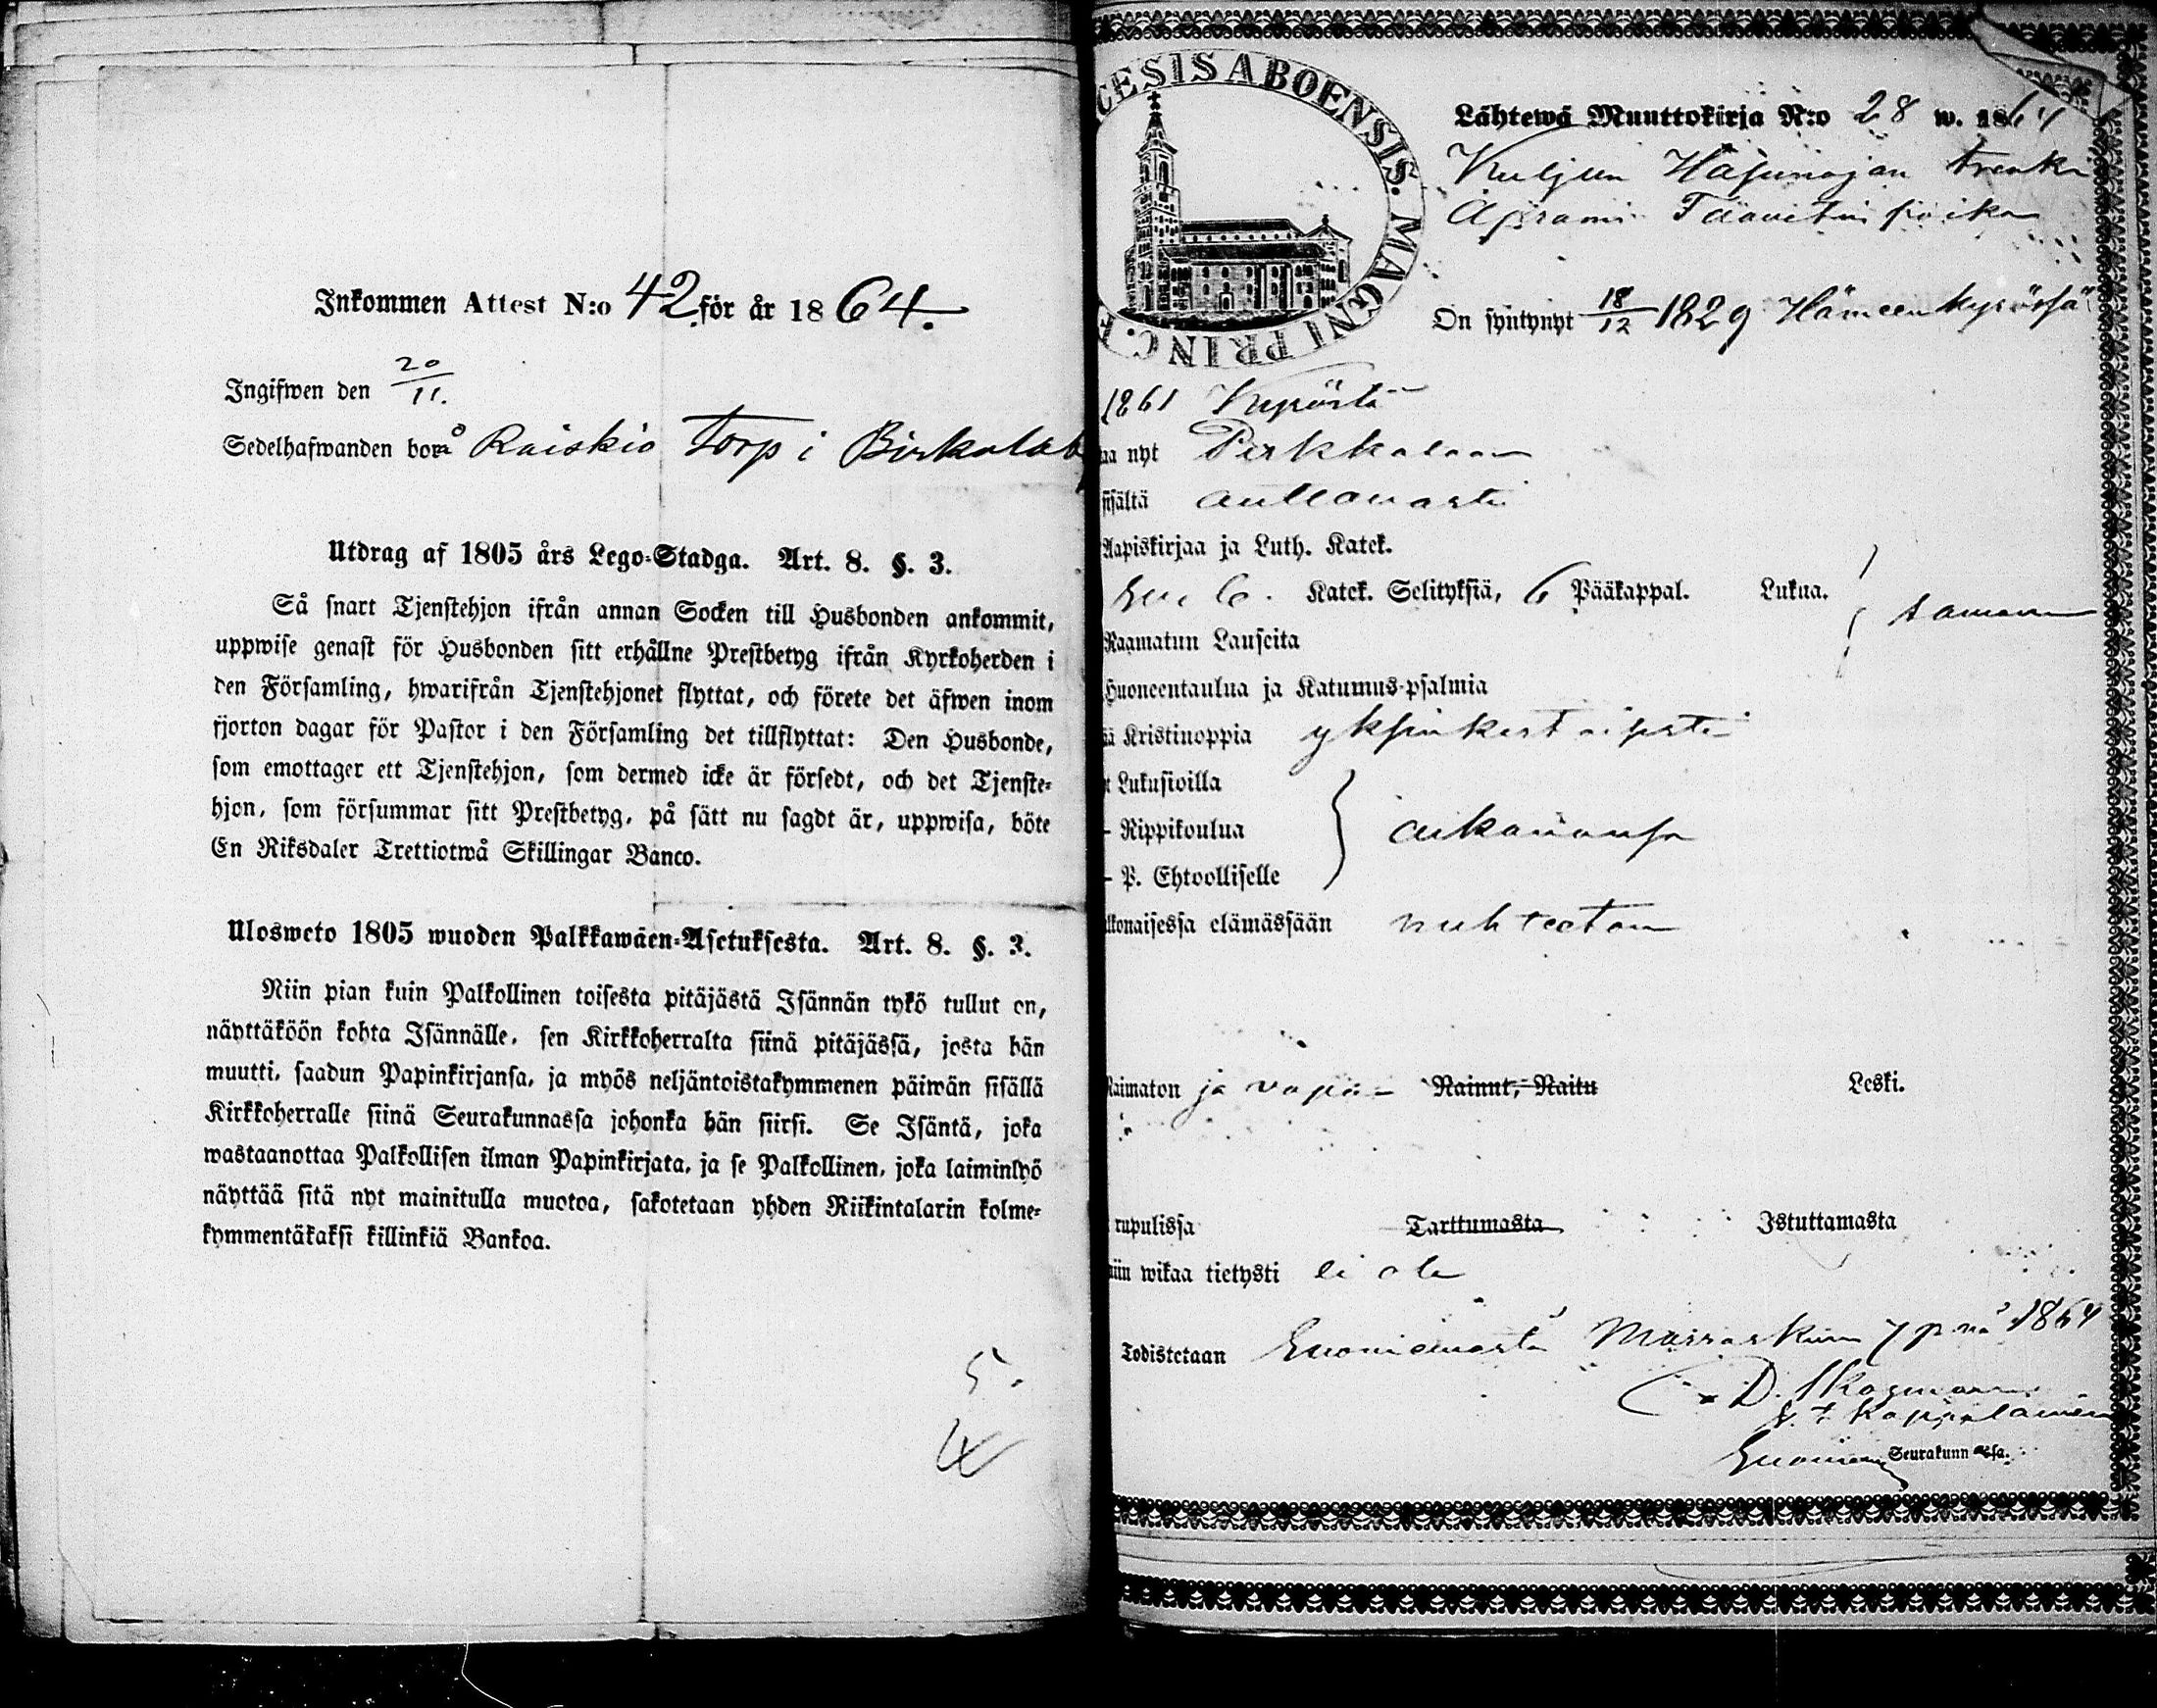 Inkommen Attest N:o 42 för år 1864.
Ingifwen den 20/11.
Sedelhafwanden bor å Raiskio Torp i Birkala by
Utdrag af 1805 års Lego-Stadga. Art. 8. §. 3.
Så snart Tjenstehjon ifrån annan Socken till Husbonden ankommit,
uppwise genast för Husbonden sitt erhållne Prestbetyg ifrån Kyrkoherden i
den Församling, hwarifrån Tjenstehjonet flyttat, och förete det äfwen inom
fjorton dagar för Pastor i den Församling det tillflyttat: Den Husbonde,
som emottager ett Tjenstehjon, som dermed icke är försedt, och det Tjenste-
hjon, som försummar sitt Prestbetyg, på sätt nu sagdt är, uppwisa, böte
En Riksdaler Trettiotwå Skillingar Banco.
Ulosweto 1805 wuoden Palkkawäen-Asetuksesta. Art. 8. §. 3.
Niin pian kuin Palkollinen toisesta pitäjästä Isännän tykö tullut on,
näyttäköön kohta Isännälle, sen Kirkkoherralta siinä pitäjässä, josta hän
muutti, saadun Papinkirjansa, ja myös neljäntoistakymmenen päiwän sisällä
Kirkkoherralle siinä Seurakunnassa johonka hän siirsi. Se Isäntä, joka
wastaanottaa Palkollisen ilman Papinkirjata, ja se Palkollinen, joka laiminlyö
näyttää sitä nyt mainitulla muotoa, sakotetaan yhden Riikintalarin kolme-
kymmentäkaksi killinkiä Bankoa.
5.
CESIS ABOENSIS. MAGNI PRINC. F
Lähtewä Muuttokirja N:o 28 w. 1864
Kuljun trenki
Aprami Taavetin poika
On syntynyt 18/12 1829 Hämeenkyrössä
1861 Kyröstä
aa nyt Pirkkalaan
sisältä auttavasti
Aapiskirjaa ja Luth. Katek.
Katek. Selityksiä, 6 Pääkappal. Lukua.
Raamatun Lauseita
samoin
Huoneentaulua ja Katumus-psalmia
ä Kristinoppia yksinkertaisesti
t Lukusioilla
- Rippikoulua
- P. Ehtoolliselle
aikanansa
lkonaisessa elämässään nuhteeton
Naimaton ja vapaa Nainut, Naitu Leski.
rupulissa Tarttumasta Istuttamasta
iin wikaa tietysti ei ole
Todistetaan Suoniemestä Marraskuun 7 p:nä 1864
D. Skogman
v. t. Kappalainen
Suoniemen Seurakunnassa.